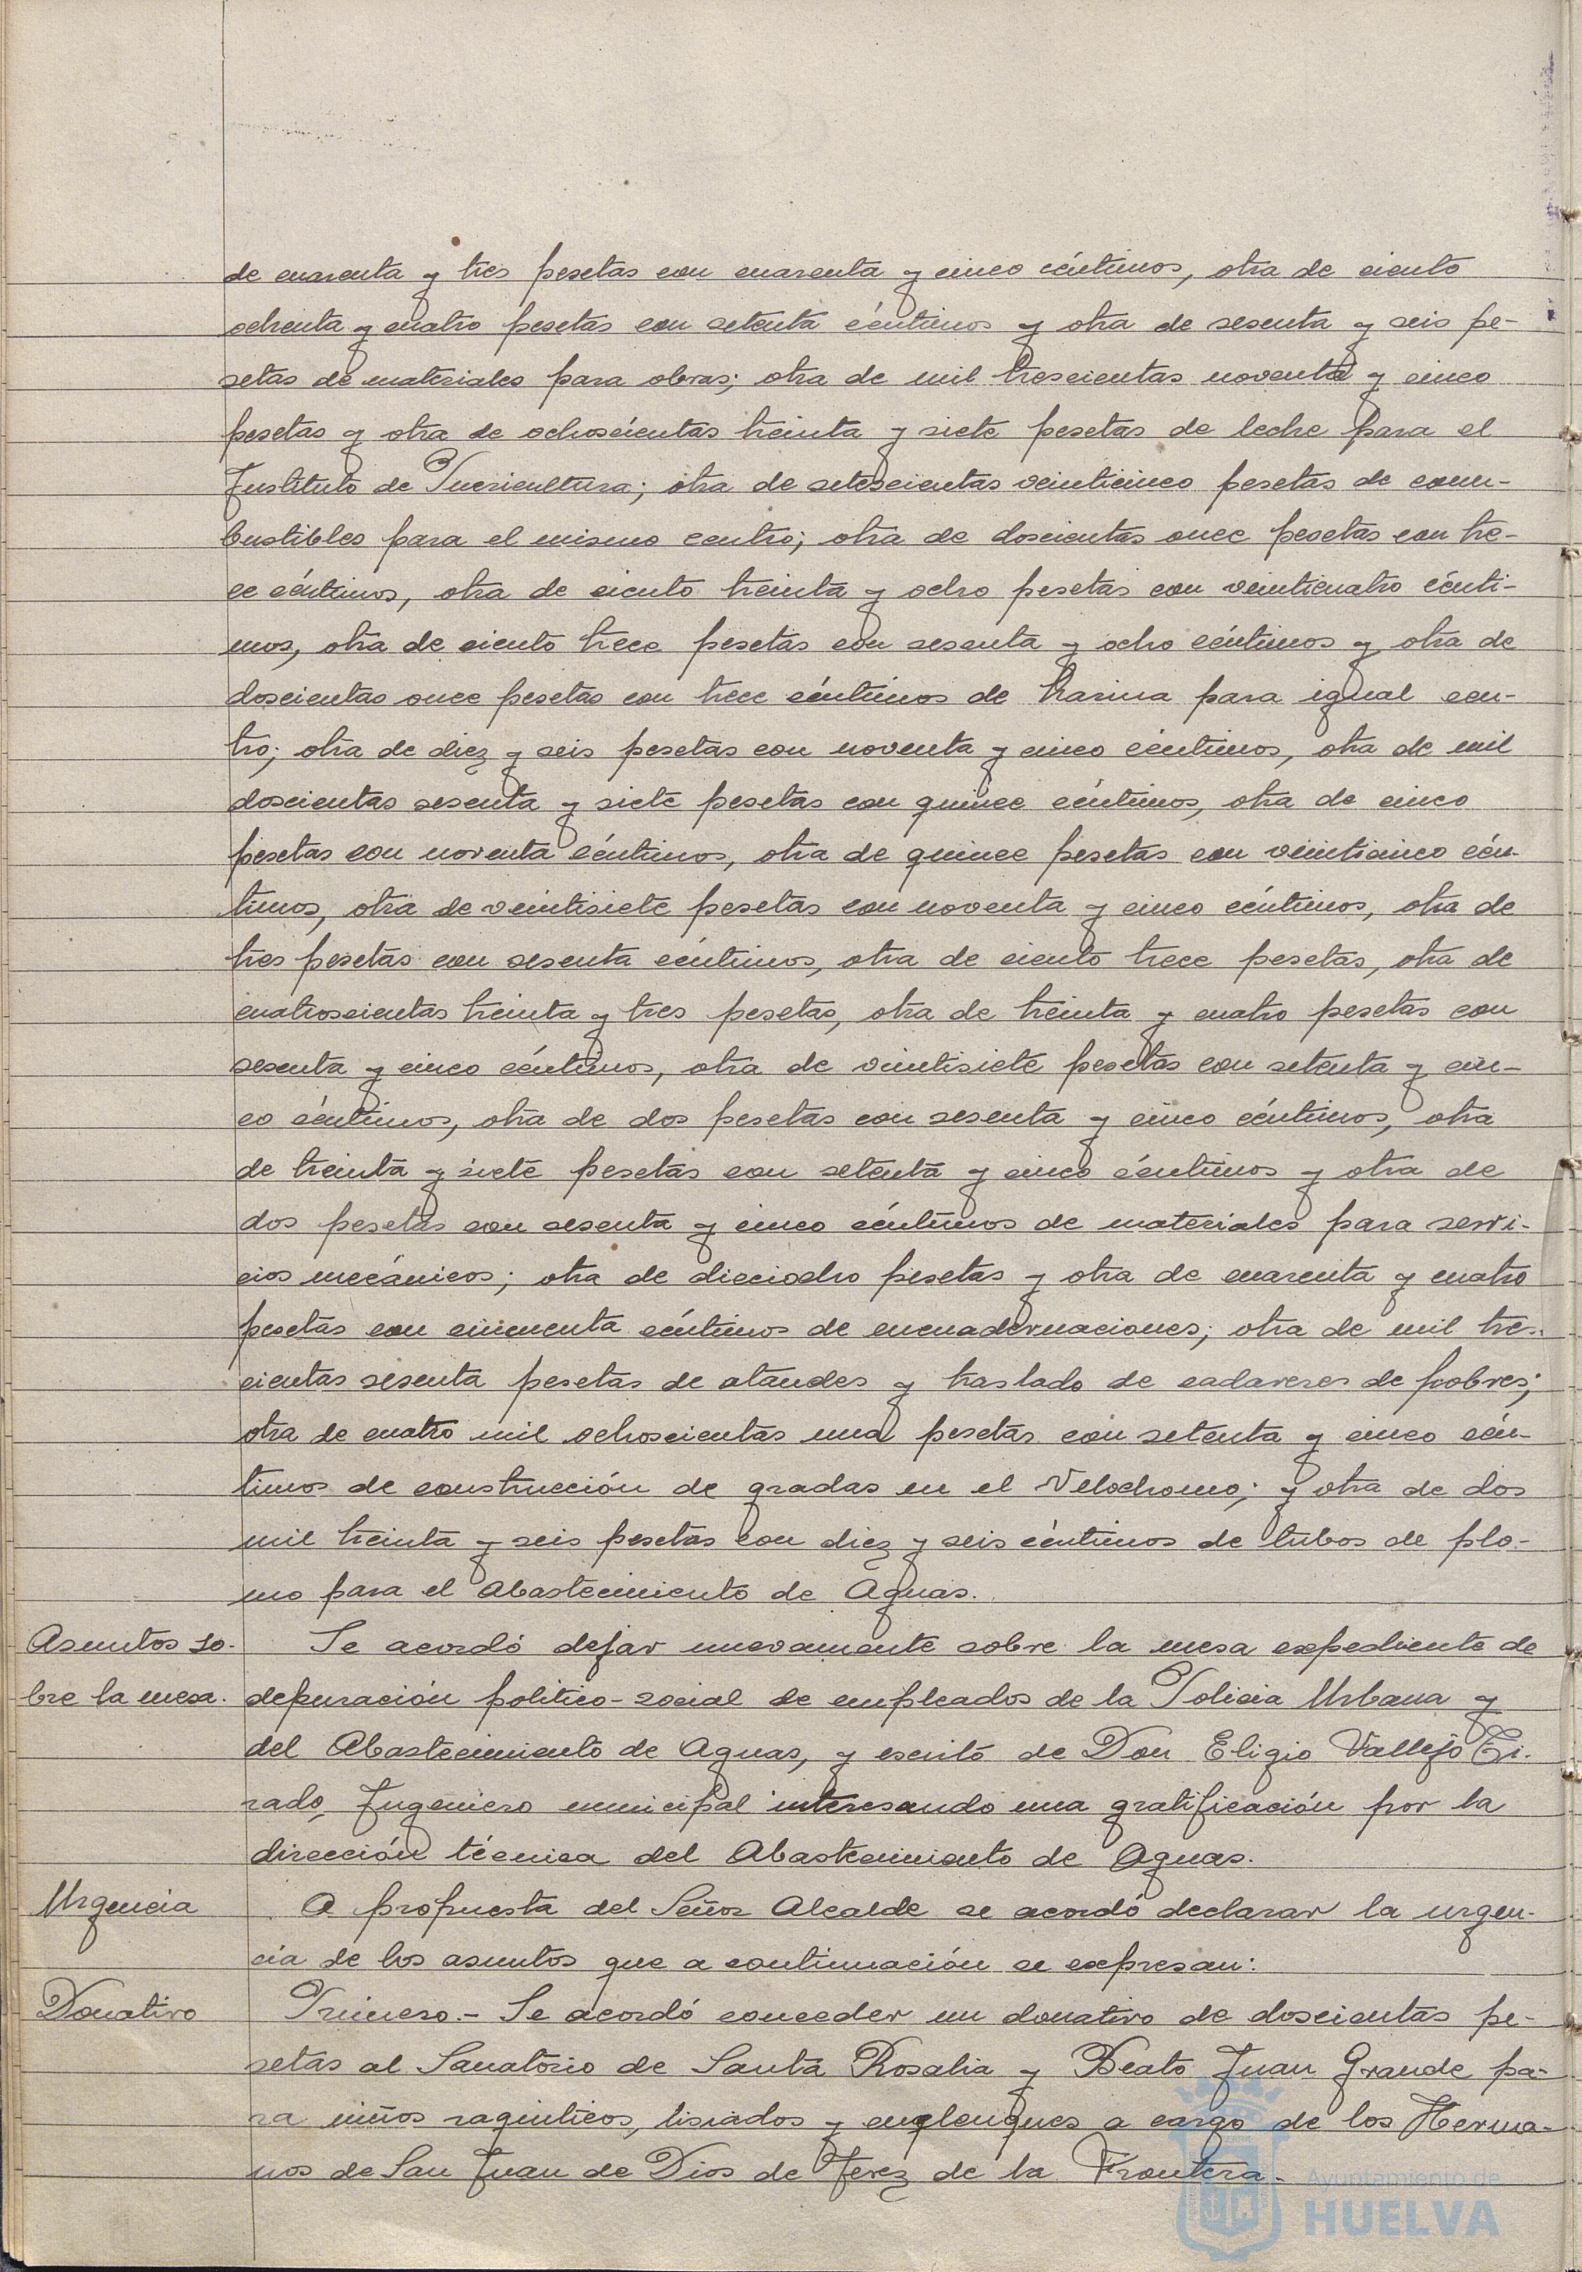 de cuarenta y tres pesetas con cuarenta y cinco céntimos, otra de ciento
ochenta y cuatro pesetas con setenta céntimos y otra de sesenta y seis pe-
setas de materiales para obras; otra de mil trescientas noventa y cinco
pesetas y otra de ochoscientas treinta y siete pesetas de leche para el
Instituto de Puericultura; otra de setescientas veinticinco pesetas de com-
bustibles para el mismo centro; otra de doscientas once pesetas con tre-
ce céntimos, otra de ciento treinta y ocho pesetas con veinticuatro cénti-
mos, otra de ciento trece pesetas con sesenta y ocho céntimos y otra de
doscientas once pesetas con trece céntimos de harina para igual cen-
tro; otra de diez y seis pesetas con noventa y cinco céntimos, otra de mil
doscientas sesenta y siete pesetas con quince céntimos, otra de cinco
pesetas con noventa céntimos, otra de quince pesetas con veinticinco cén-
timos, otra de veintisiete pesetas con noventa y cinco céntimos, otra de
tres pesetas con sesenta céntimos, otra de ciento trece pesetas, otra de
cuatroscientas treinta y tres pesetas, otra de treinta y cuatro pesetas con
sesenta y cinco céntimos, otra de veintisiete pesetas con setenta y cin-
co céntimos, otra de dos pesetas con sesenta y cinco céntimos, otra
de treinta y siete pesetas con setenta y cinco céntimos y otra de
dos pesetas con sesenta y cinco céntimos de materiales para servi-
cios mecánicos; otra de dieciocho pesetas y otra de cuarenta y cuatro
pesetas con cincuenta céntimos de encuadernaciones; otra de mil tres-
cientas sesenta pesetas de ataudes y traslado de cadaveres de pobres;
otra de cuatro mil ochoscientas una pesetas con setenta y cinco cén-
timos de construcción de gradas en el Velodromo; y otra de dos
mil treinta y seis pesetas con diez y seis céntimos de tubos de plo-
mo para el Abastecimiento de Aguas.
Asuntos so-
bre la mesa.
Se acordó dejar nuevamente sobre la mesa expediente de
depuración politico-social de empleados de la Policia Urbana y
del Abastecimiento de Aguas, y escrito de Don Eligio Vallejo Ti-
rado, Ingeniero municipal interesando una gratificación por la
dirección técnica del Abastecimiento de Aguas.
Urgencia
A propuesta del Señor Alcalde se acordó declarar la urgen-
cia de los asuntos que a continuación se expresan:
Donativo
Primero.- Se acordó conceder un donativo de doscientas pe-
setas al Sanatorio de Santa Rosalia y Beato Juan Grande pa-
ra niños raquíticos, lisiados y enclenques a cargo de los Herma-
nos de San Juan de Dios de Jerez de la Frontera.
Ayuntamiento de
HUELVA